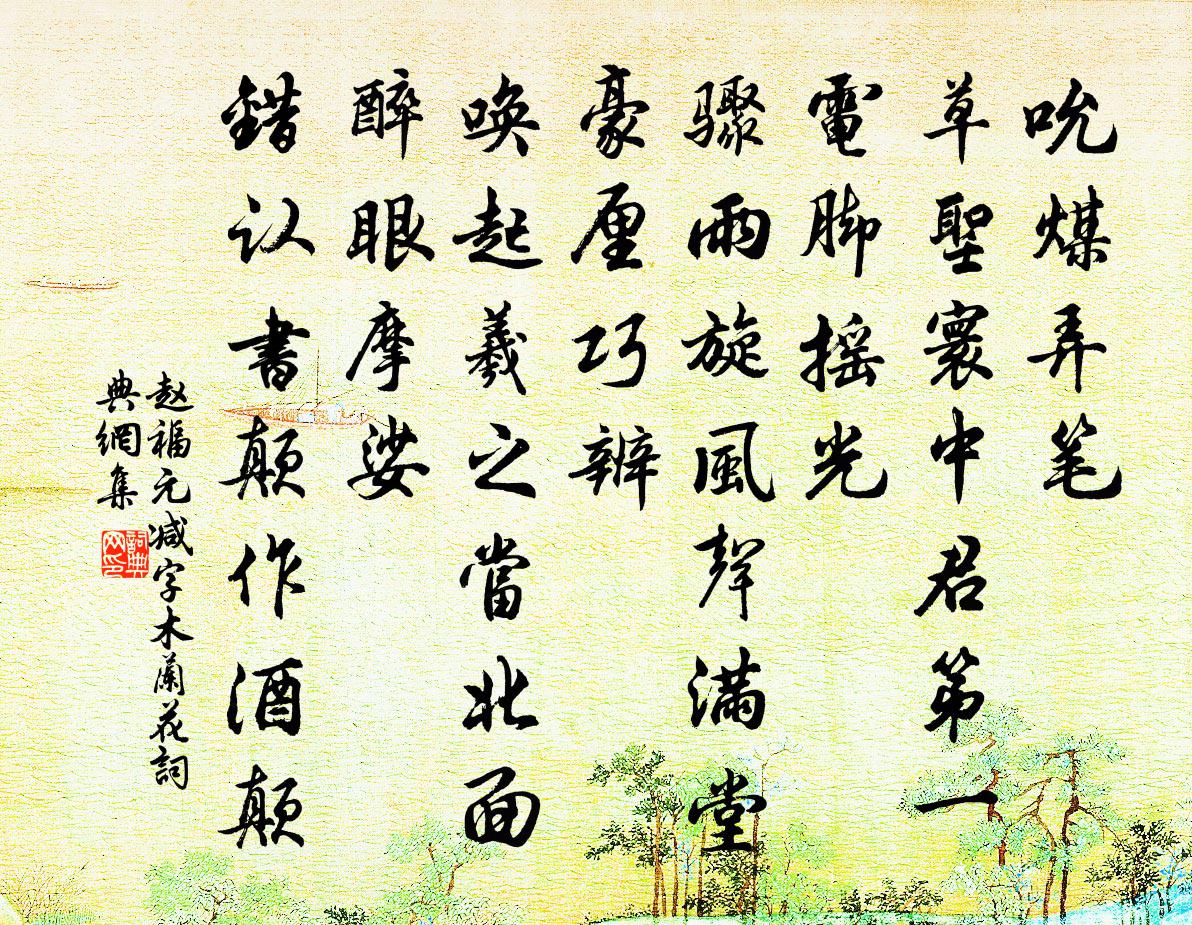 吮煤弄笔
草聖寰中君第一
電脚摇光
骤雨旋風聲满堂
豪厘巧辨
唤起羲之當北面
醉眼摩娑
错认書颠作酒颠
赵福元减字木蘭花詞
典網集
詞典网印